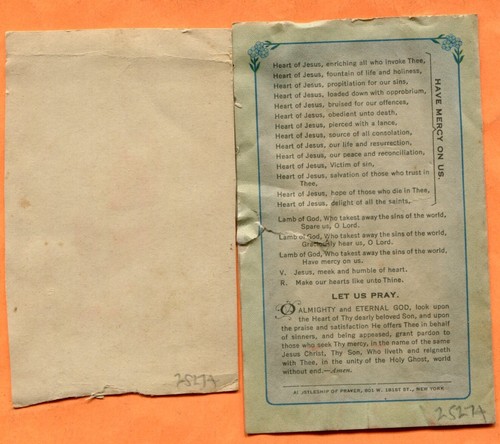 Heart of Jesus, enriching all who invoke Thee,
Heart of Jesus, fountain of life and holiness,
Heart of Jesus, propitiation for our sins,
Heart of Jesus, loaded down with opprobrium,
Heart of Jesus, bruised for our offences,
Heart of Jesus, obedient unto death,
Heart of Jesus, pierced with a lance,
Heart of Jesus, source of all consolation,
Heart of Jesus, our life and resurrection,
Heart of Jesus, our peace and reconciliation,
Heart of Jesus, Victim of sin,
Heart of Jesus, salvation of those who trust in
Thee,
Heart of Jesus, hope of those who die in Thee,
Heart of Jesus, delight of all the saints,
HAVE MERCY ON US.
Lamb of God, Who takest away the sins of the world,
Spare us, O Lord.
Lamb of God, Who takest away the sins of the world,
Graciously hear us, O Lord.
Lamb of God, Who takest away the sins of the world,
Have mercy on us.
V. Jesus, meek and humble of heart.
R. Make our hearts like unto Thine.
LET US PRAY.
O ALMIGHTY and ETERNAL GOD, look upon
the Heart of Thy dearly beloved Son, and upon
the praise and satisfaction He offers Thee in behalf
of sinners, and being appeased, grant pardon to
those who seek Thy mercy, in the name of the same
Jesus Christ, Thy Son, Who liveth and reigneth
with Thee, in the unity of the Holy Ghost, world
without end.—Amen.
OF PRAYER, 801 W. 181ST ST., NEW YORK
25274
25274